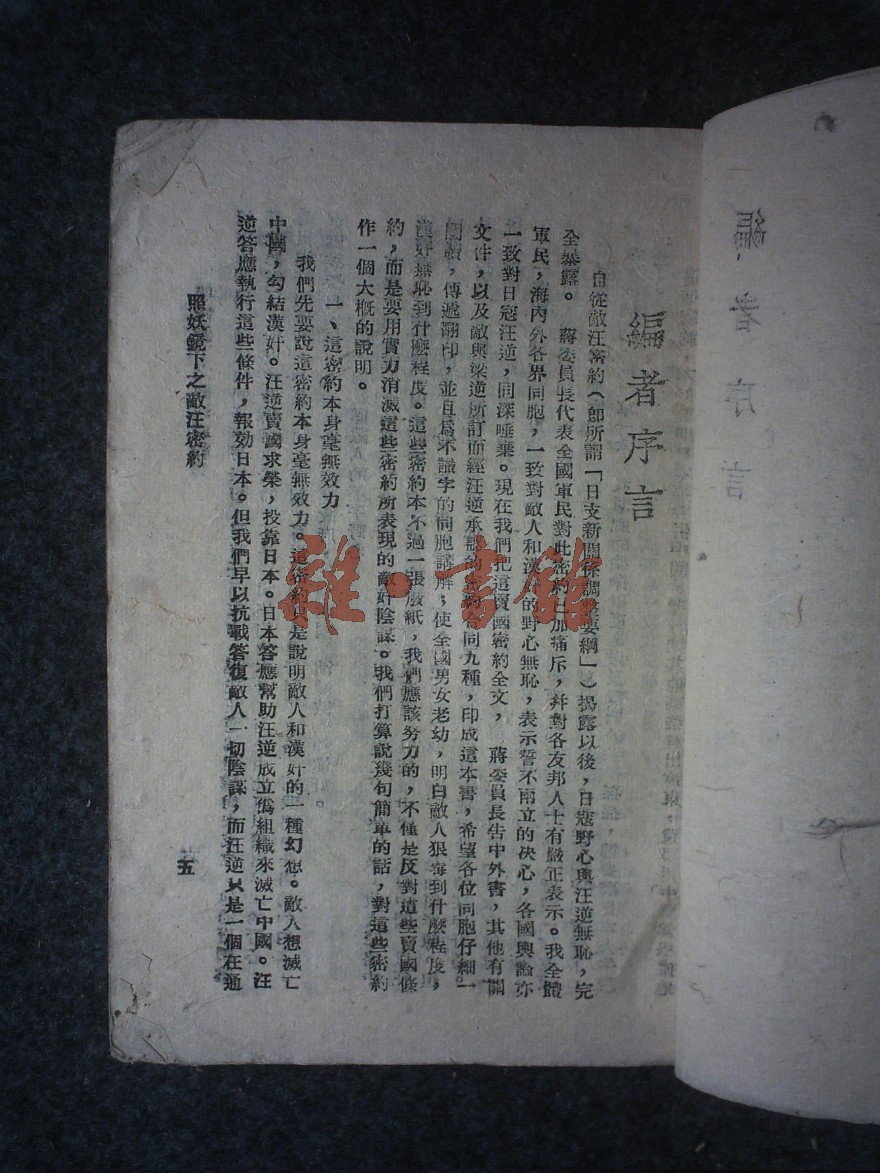 編者序言
自從敵汪密約（卽所謂「日支新關係調整要綱」）揭露以後，日寇野心與汪逆無恥，完
全暴露。　蔣委員長代表全國軍民對此密約一加痛斥，幷對各友邦人士有嚴正表示。我全體
軍民，海內外各界同胞，一致對敵人和漢奸的野心無恥，表示誓不兩立的決心，各國輿論亦
一致對日寇汪逆，同深唾棄。現在我們把這賣國密約全文，　蔣委員長告中外書，其他有關
文件，以及敵與梁逆所訂而經汪逆承認的密約合同九種，印成這本書，希望各位同胞仔細一
閱讀，傳遞翻印，並且爲不識字的同胞講解；使全國男女老幼，明白敵人狠毒到什麼程度，
漢奸無恥到什麼程度。這些密約本不過一張廢紙，我們應該努力的，不僅是反對這些賣國條
約，而是要用實力消滅這些密約所表現的敵奸陰謀。我們打算說幾句簡單的話，對這些密約
作一個大概的說明。
一、這密約本身毫無效力
我們先要說這密約本身毫無效力。這密約只是說明敵人和漢奸的一種幻想。敵人想滅亡
中國，勾結漢奸。汪逆賣國求榮，投靠日本。日本答應幫助汪逆成立僞組織來滅亡中國。汪
逆答應執行這些條件，報効日本。但我們早以抗戰答復敵人一切陰謀，而汪逆只是一個在通
照妖鏡下之敵汪密約
五
雜·書館
編者序言